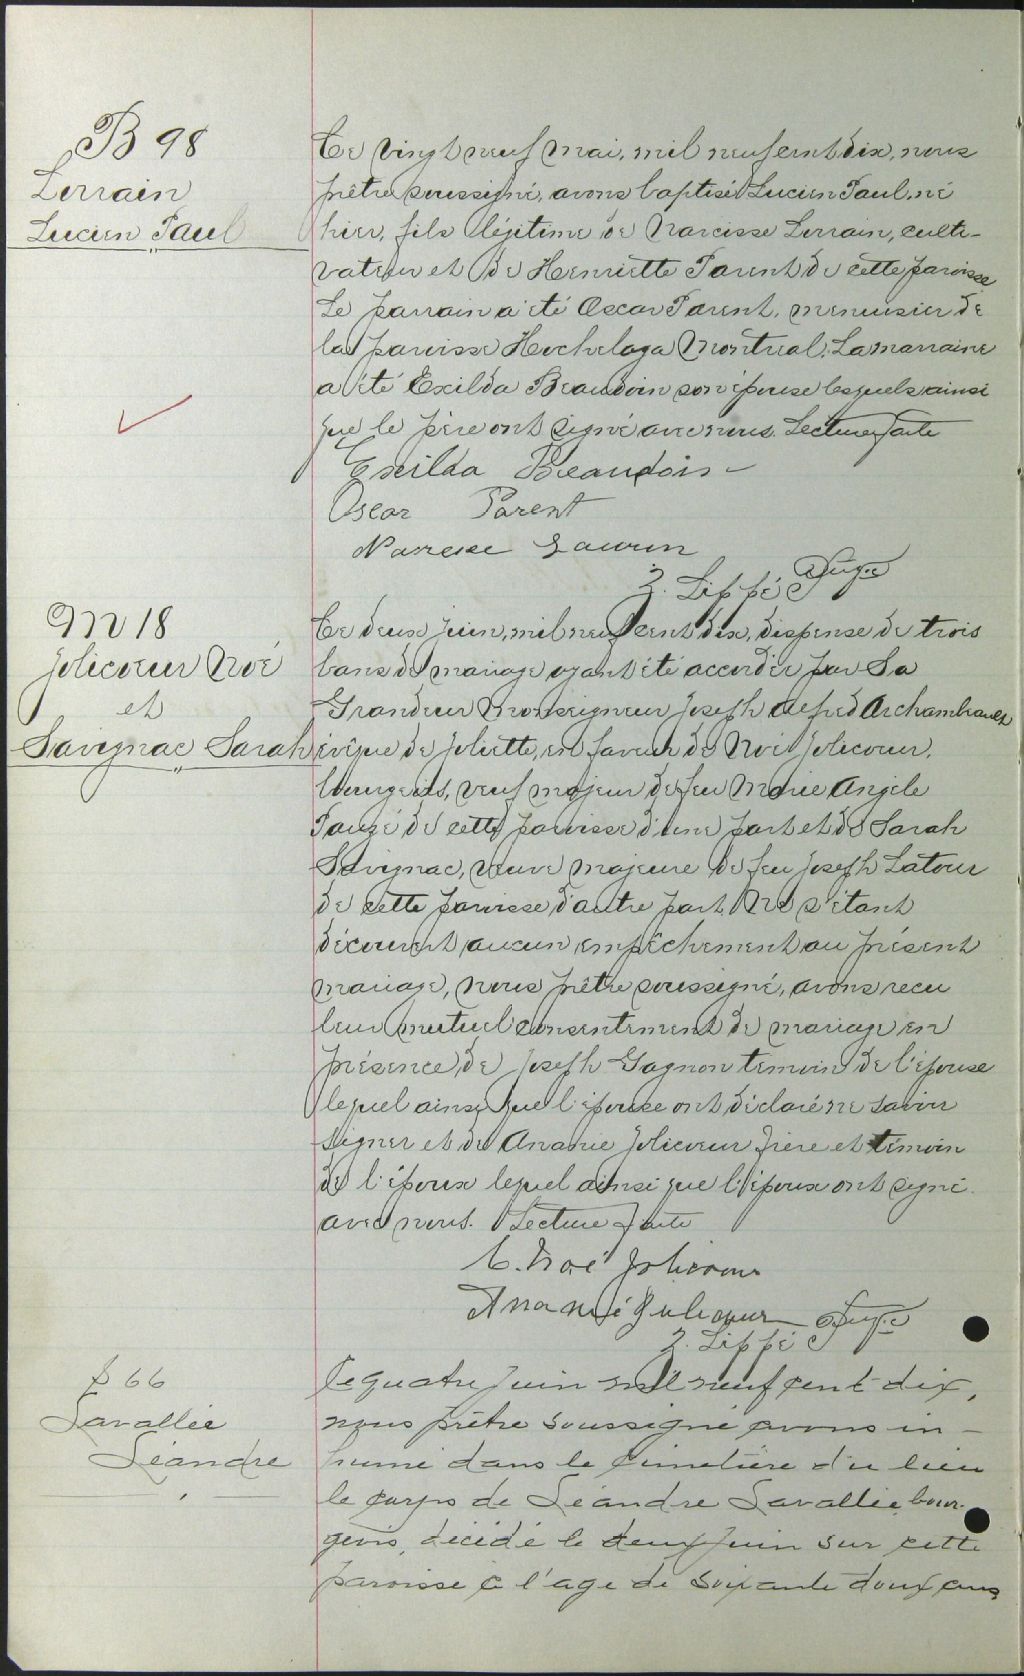 B 98
Lorrain
Lucien Paul
Ce vingt neuf Mai, mil neuf cent dix, nous
prêtre soussigné, avons baptisé Lucien Paul, né
hier, fils légitime de Narcisse Lorrain, culti-
vateur et de Henriette Parent de cette paroisse
Le parrain a été Oscar Parent, menuisier de
la paroisse Hochelaga Montreal. La marraine
a été Exilda Beaudoin son épouse lesquels ainsi
que le père ont signé avec nous. Lecture faite
Exilda Beaudoin
Oscar Parent
Narcisse Laurin
Z. Lippé Ptre
M 18
Jolicoeur Noé
et
Savignac Sarah
Ce deux Juin, mil neuf cent dix, dispense de trois
bans de mariage ayant été accordée par Sa
Grandeur Monseigneur Joseph Alfred Archambeault
évêque de Joliette, en faveur de Noé Jolicoeur,
bourgeois, veuf majeur de feu Marie Angèle
Pauzé de cette paroisse d'une part et de Sarah
Savignac, veuve majeure de feu Joseph Latour
de cette paroisse d'autre part. Ne s'étant
découvert aucun empêchement au présent
mariage, nous prêtre soussigné, avons recu
leur mutuel consentement de mariage en
présence de Joseph Gagnon temoin de l'épouse
lequel ainsi que l'épouse ont déclaré ne savoir
signer et de Ananie Jolicoeur frère et témoin
de l'époux lequel ainsi que l'époux ont signé
avec nous. Lecture faite
Noé Jolicoeur
Ananié Jolicoeur
Z. Lippé Ptre
S 66
Lavallée
Léandre
Le quatre Juin mil neuf cent dix,
nous prêtre soussigné avons in-
humé dans le cimetière du lieu
le corps de Léandre Lavallée, bour-
geois, décédé le deux Juin sur cette
paroisse à l'age de soixante douze ans